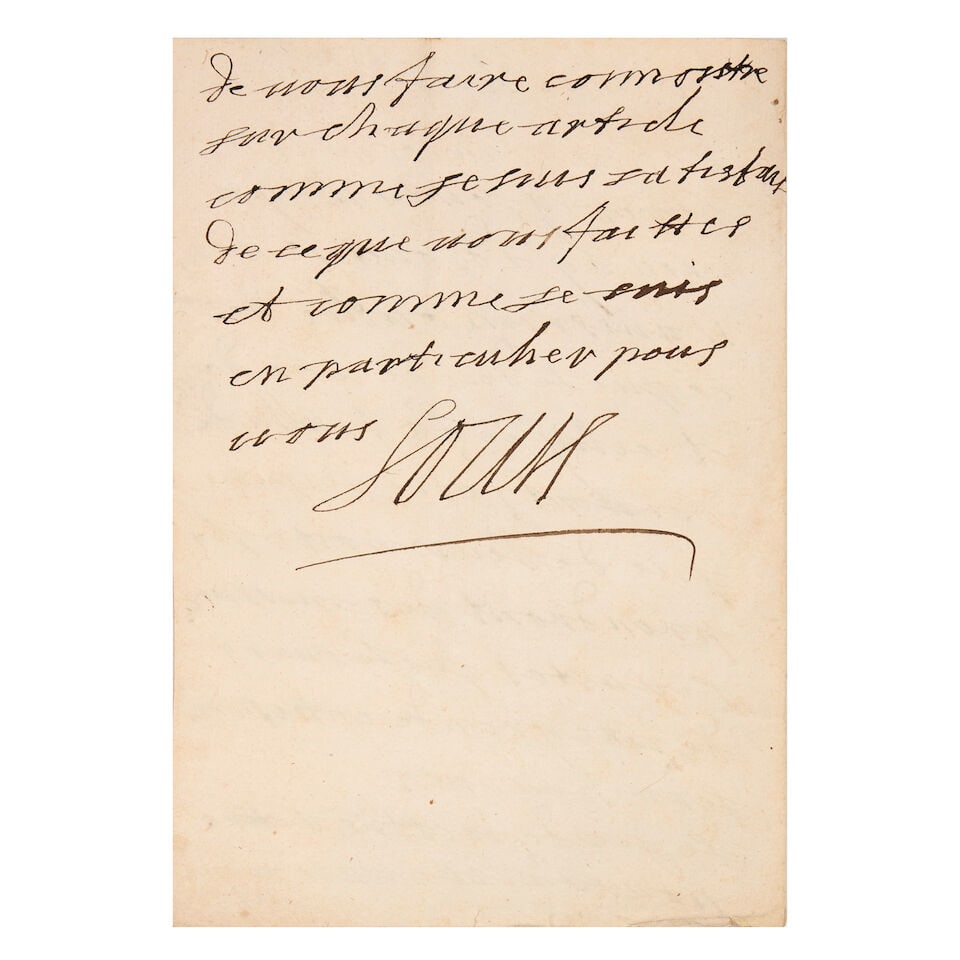 de vous faire connoistre
sur chaque article
comme je suis satisfait
de ce que vous faittes
et comme je suis
en particulier pour
vous Louis